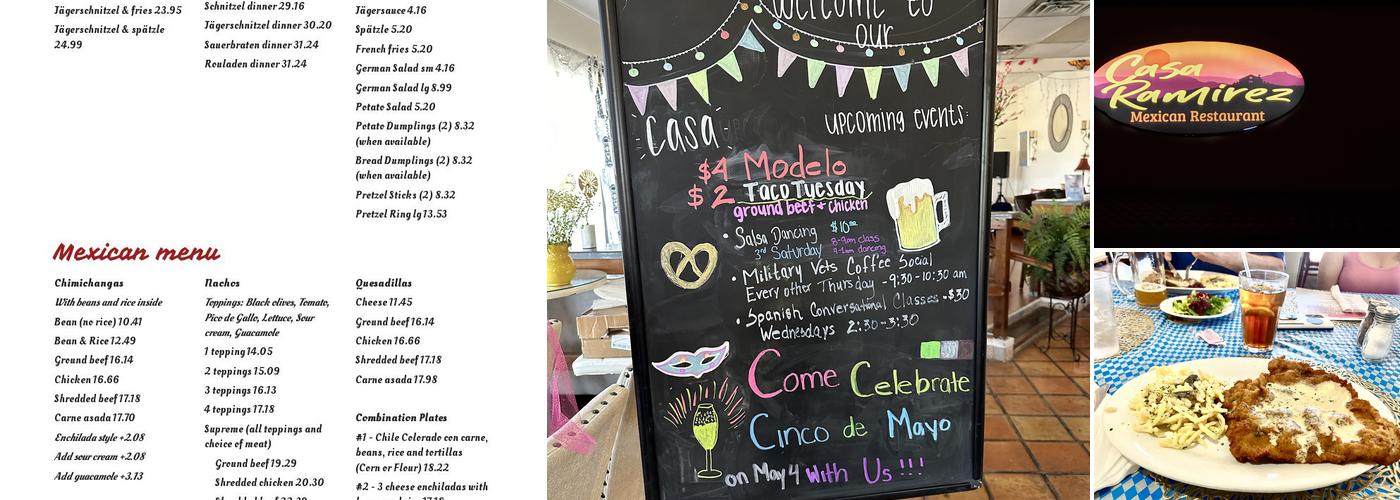 Jägerschnitzel & fries 23.95
Jägerschnitzel & spätzle
24.99
Schnitzel dinner 29.16
Jägerschnitzel dinner 30.20
Sauerbraten dinner 31.24
Rouladen dinner 31.24
Jägersauce 4.16
Spätzle 5.20
French fries 5.20
German Salad sm 4.16
German Salad lg 8.99
Potato Salad 5.20
Potato Dumplings (2) 8.32
(when available)
Bread Dumplings (2) 8.32
(when available)
Pretzel Sticks (2) 8.32
Pretzel Ring lg 13.53
Mexican menu
Chimichangas
With beans and rice inside
Bean (no rice) 10.41
Bean & Rice 12.49
Ground beef 16.14
Chicken 16.66
Shredded beef 17.18
Carne asada 17.70
Enchilada style +2.08
Add sour cream +2.08
Add guacamole +3.13
Nachos
Toppings: Black olives, Tomato,
Pico de Gallo, Lettuce, Sour
cream, Guacamole
1 topping 14.05
2 toppings 15.09
3 toppings 16.13
4 toppings 17.18
Supreme (all toppings and
choice of meat)
Ground beef 19.29
Shredded chicken 20.30
Quesadillas
Cheese 11.45
Ground beef 16.14
Chicken 16.66
Shredded beef 17.18
Carne asada 17.98
Combination Plates
#1 - Chile Colorado con carne,
beans, rice and tortillas
(Corn or Flour) 18.22
#2 - 3 cheese enchiladas with
Welcome to
our
Casa
upcoming events:
$4 Modelo
$2 Taco Tuesday
ground beef + chicken
• Salsa Dancing $10.00
3rd Saturday 8-9pm class
9-1am dancing
• Military Vets Coffee Social
Every other Thursday - 9:30-10:30 am
• Spanish Conversational Classes - $30
Wednesdays 2:30-3:30
Come Celebrate
Cinco de Mayo
on May 4 With Us!!!
Casa
Ramirez
Mexican Restaurant